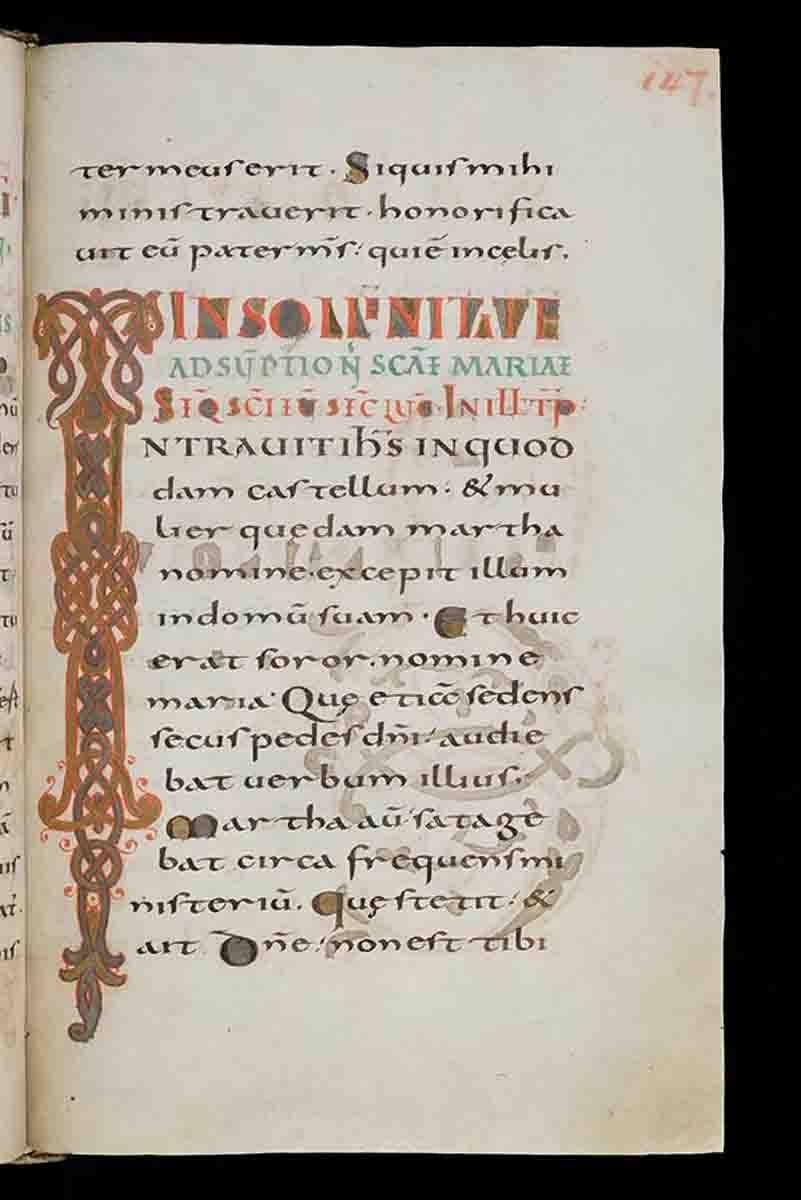 147.
ter meus erit. Siquis mihi
ministraverit. honorifica
uit eū pater m̄s. quiē in cęlis.
IN SOLL̄PNITATE
ADSŪPTIONĪ SCAE MARIAE
SEQ̄ SC̄I EŪ SEC̄ LUC̄. IN ILL T̄P
INTRAVIT ih̄s IN quod
dam castellum. & mu
lier quędam martha
nomine. excepit illum
in domū suam. Et huic
erat soror. nomine
maria. Quę etiā sedens
secus pedes dn̄i. audie
bat uerbum illius.
Martha aū satage
bat circa frequens mi
nisteriū. Quę stetit. &
ait Dn̄e. non est tibi